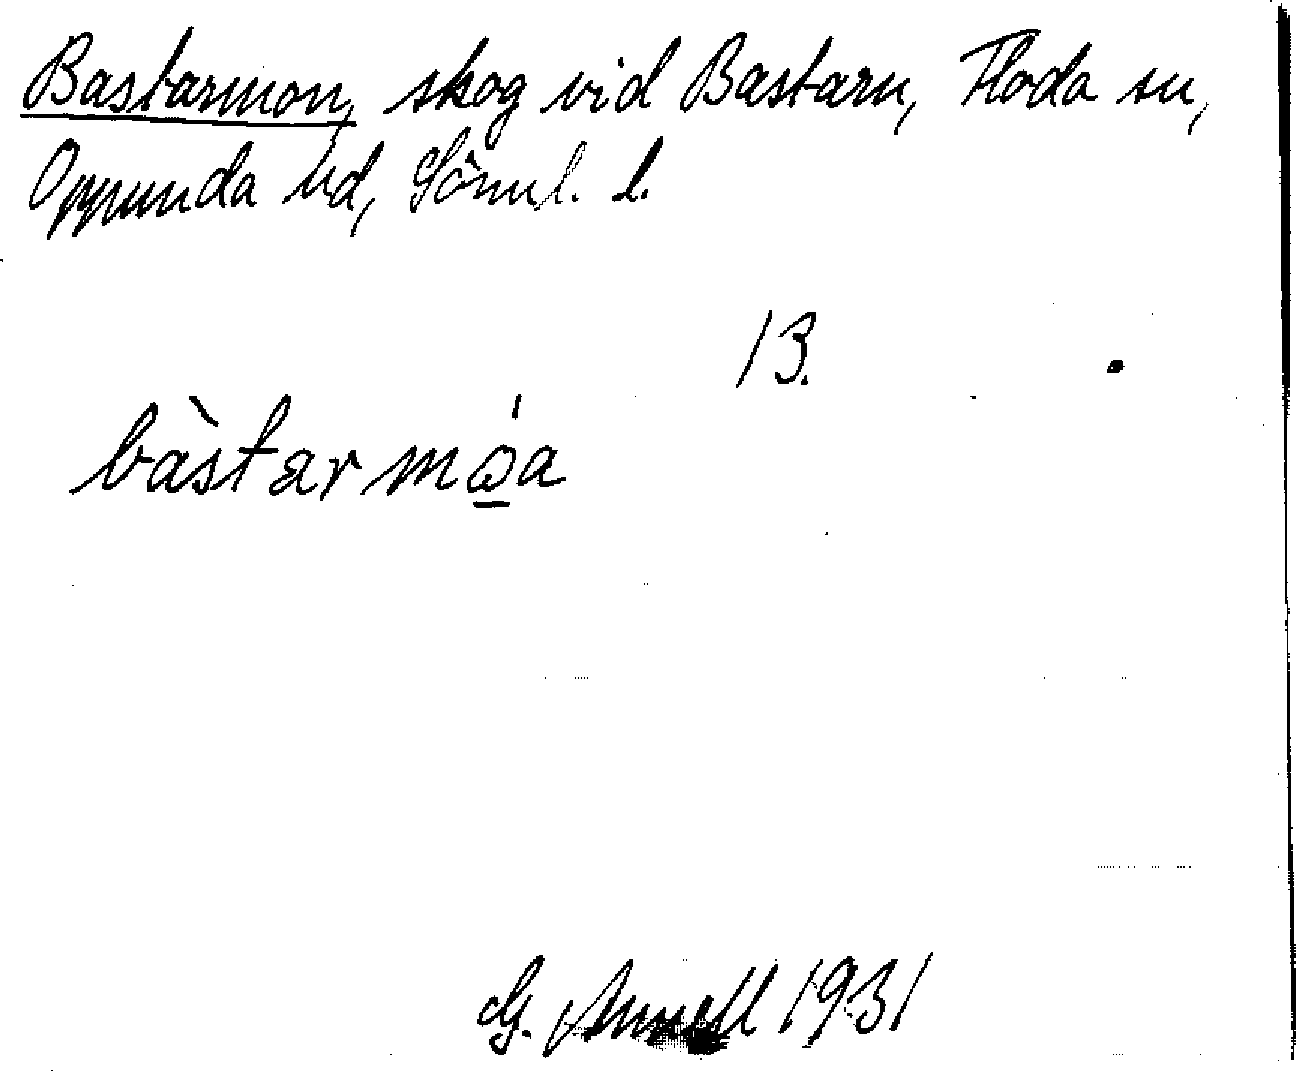 Bastarmon, skog vid Bastarn, Floda sn,
Oppunda hd, Sörml. l.
13.
bàstarmǫ́a
G. Annell 1931